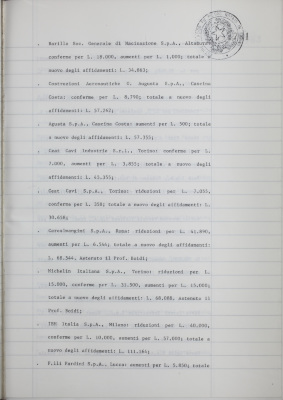 . Barilla Soc. Generale di Navigazione S.p.A.,
conferme per L. 18.000, aumenti per L. 1.000; totale a
nuovo degli affidamenti: L.
. Costruzioni Aeronautiche G. Agusta S.p.A., Cascina
Costa: conferme per L. 8.790; totale a nuovo degli
affidamenti: L. 57.242;
. Agusta S.p.A., Cascina Costa: aumenti per L. 300; totale
a nuovo degli affidamenti: L. 57.352;
. Ceat Cavi Industrie S.r.l., Torino: conferme per L.
7.000, aumenti per L. 3.855; totale a nuovo degli
affidamenti: L. 63.355;
. Ceat Cavi S.p.A., Torino: riduzioni per L.
conferme per L. 358; totale a nuovo degli affidamenti: L.
39.618;
. S.p.A., Roma: riduzioni per L. 41.890,
aumenti per L. 6.544; totale a nuovo degli affidamenti:
L. 68.544. Astenuto il Prof. Guidi;
. Michelin Italiana S.p.A., Torino: riduzioni per L.
15.000, conferme per L. 31.900, aumenti per L. 15.000;
totale a nuovo degli affidamenti: L. 68.088. Astenuto il
Prof. Guidi;
. IBM Italia S.p.A., Milano: riduzioni per L. 40.000,
conferme per L. 10.000, aumenti per L. 57.000; totale a
nuovo degli affidamenti: L. 111.264;
. F.lli Fantini S.p.A., Lucca: aumenti per L. 5.850; totale